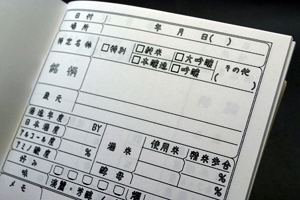 日付 年 月 日( )
場所
特定名称 □特別 □純米 □大吟醸 その他
□本醸造 □吟醸 ( )
銘柄
蔵元
醸造年度 BY 酒米 使用米 精米歩合
日本酒度 %
アルコール度 %
アミノ酸度 酵母 %
好み
味 濃醇・芳醇
メモ